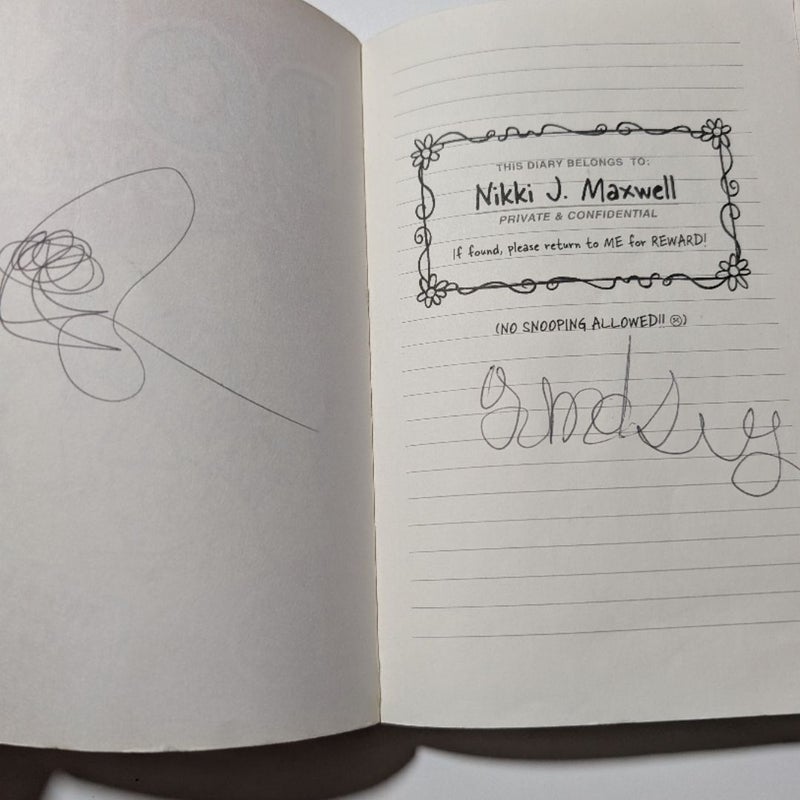 THIS DIARY BELONGS TO:
Nikki J. Maxwell
PRIVATE & CONFIDENTIAL
If found, please return to ME for REWARD!
(NO SNOOPING ALLOWED!! ☹)
Lindsey